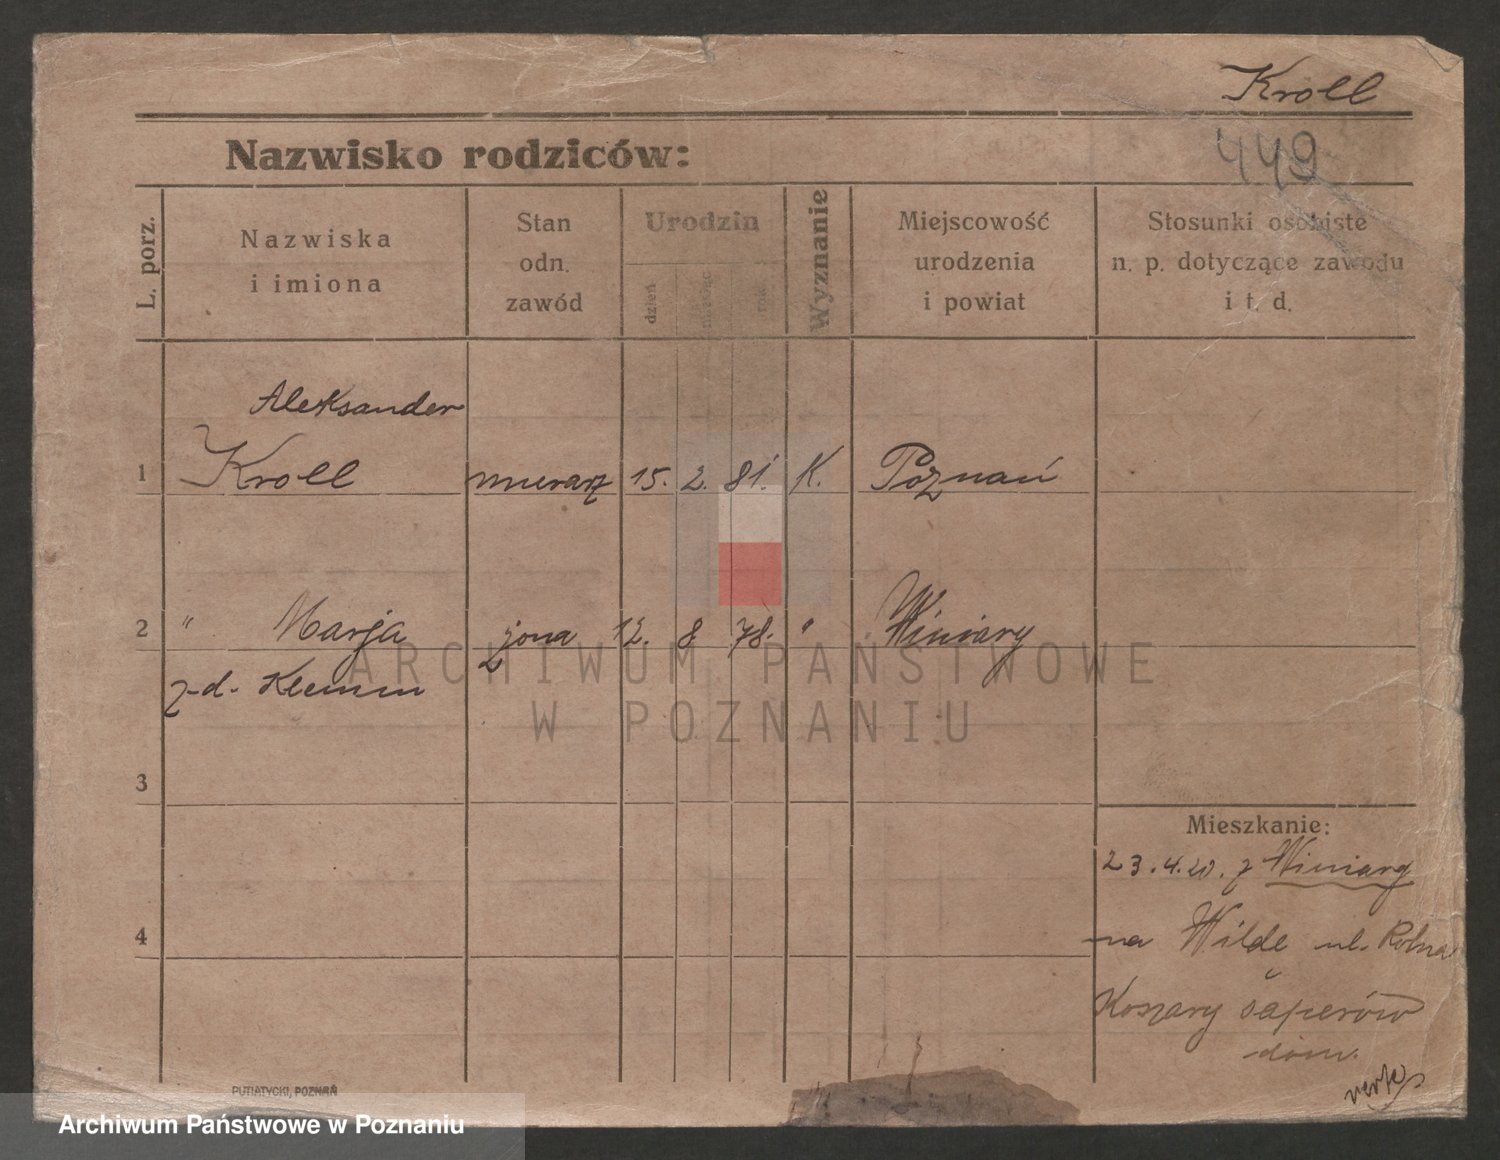 Kroll
449
Nazwisko rodziców:
L. porz.
Nazwiska
i imiona
Stan
odn.
zawód
Urodzin
dzień
miesiąc
Wyznanie
Miejscowość
urodzenia
i powiat
Stosunki osobiste
n. p. dotyczące zawodu
i t. d.
Aleksander
1 Kroll murarz 15. 2. 81. K. Poznań
2 " Marja żona 12. 8. 78. " Winiary
z d. Klemm
3
Mieszkanie:
23.4.20. z Winiary
4
na Wilde ul. Rolna
Koszary saperów
dom.
verte
PUTIATYCKI, POZNAŃ
ARCHIWUM PAŃSTWOWE
W POZNANIU
Archiwum Państwowe w Poznaniu